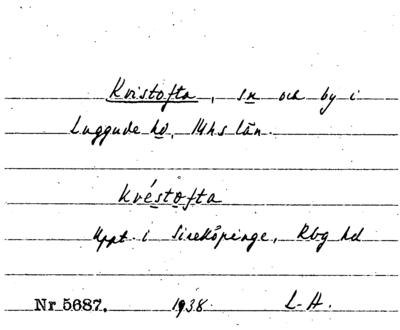 Kvistofta, sn och by i
Luggude hd, Mhs län.
Kvéstofta
Uppt. i Sireköpinge, Rbg hd
Nr 5687. 1938. L-H.